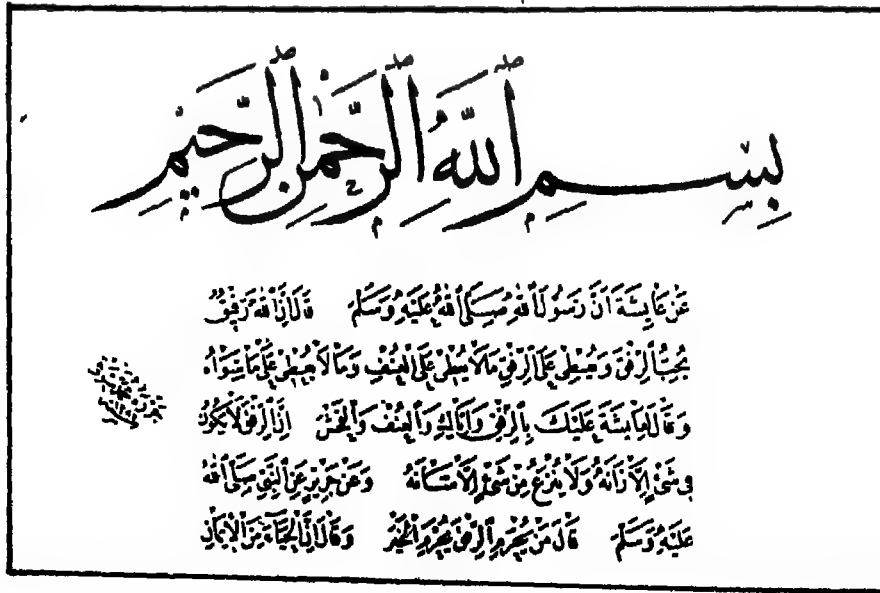 بِسْمِ ٱللَّهِ ٱلرَّحْمٰنِ ٱلرَّحِيمِ
عَنْ عَائِشَةَ اَنَّ رَسُولَ ٱللّٰهِ صَلَّى ٱللّٰهُ عَلَيْهِ وَسَلَّمَ قَالَ اِنَّ ٱللّٰهَ رَفِيقٌ
يُحِبُّ ٱلرِّفْقَ وَيُعْطِى عَلَى ٱلرِّفْقِ مَا لَا يُعْطِى عَلَى ٱلْعُنْفِ وَمَا لَا يُعْطِى عَلَى مَا سِوَاهُ
وَقَالَ لِعَائِشَةَ عَلَيْكَ بِٱلرِّفْقِ وَاِيَّاكِ وَٱلْعُنْفَ وَٱلْفُحْشَ اِنَّ ٱلرِّفْقَ لَا يَكُونُ
فِى شَىْءٍ اِلَّا زَانَهُ وَلَا يُنْزَعُ مِنْ شَىْءٍ اِلَّا شَانَهُ وَعَنْ جَرِيرٍ عَنِ ٱلنَّبِىِّ صَلَّى ٱللّٰهُ
عَلَيْهِ وَسَلَّمَ قَالَ مَنْ يُحْرَمِ ٱلرِّفْقَ يُحْرَمِ ٱلْخَيْرَ وَقَالَ اِنَّ ٱلْحَيَاءَ مِنَ ٱلْاِيمَانِ